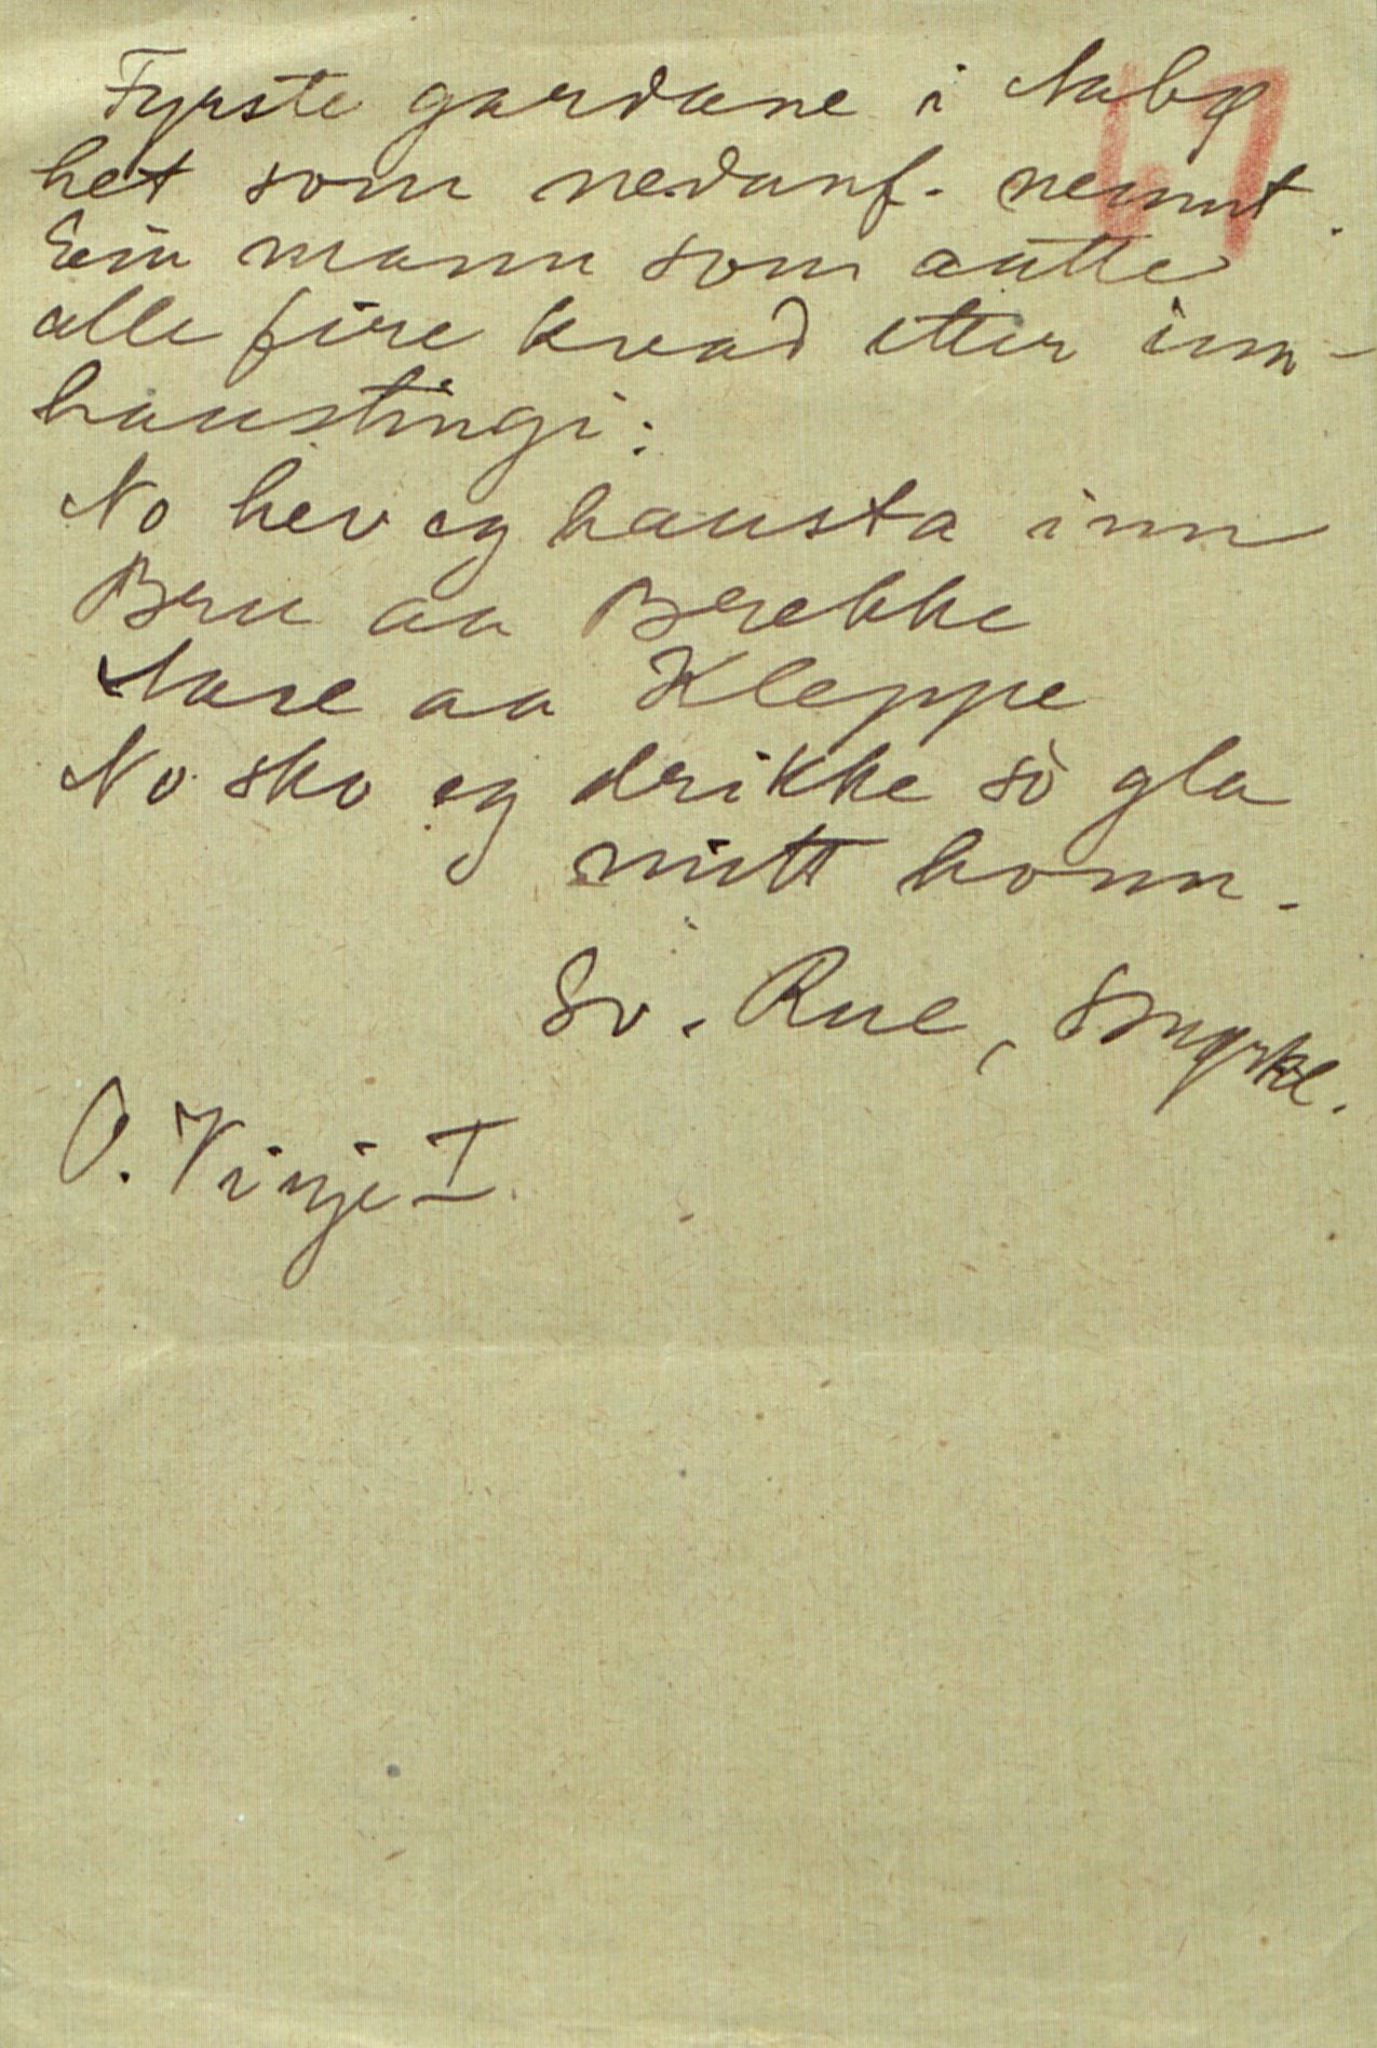 Fyrste gardane i Aabø
het som nedanf. nemnt.
Ein mann som aatte
alle fire kvad etter inn-
haustingi:
No hev eg hausta inn
Bru aa Brekke
Aase aa Kleppe
No sko eg drikke sò gla
mitt honn.
Sv. Rue,
O. Vinje I.